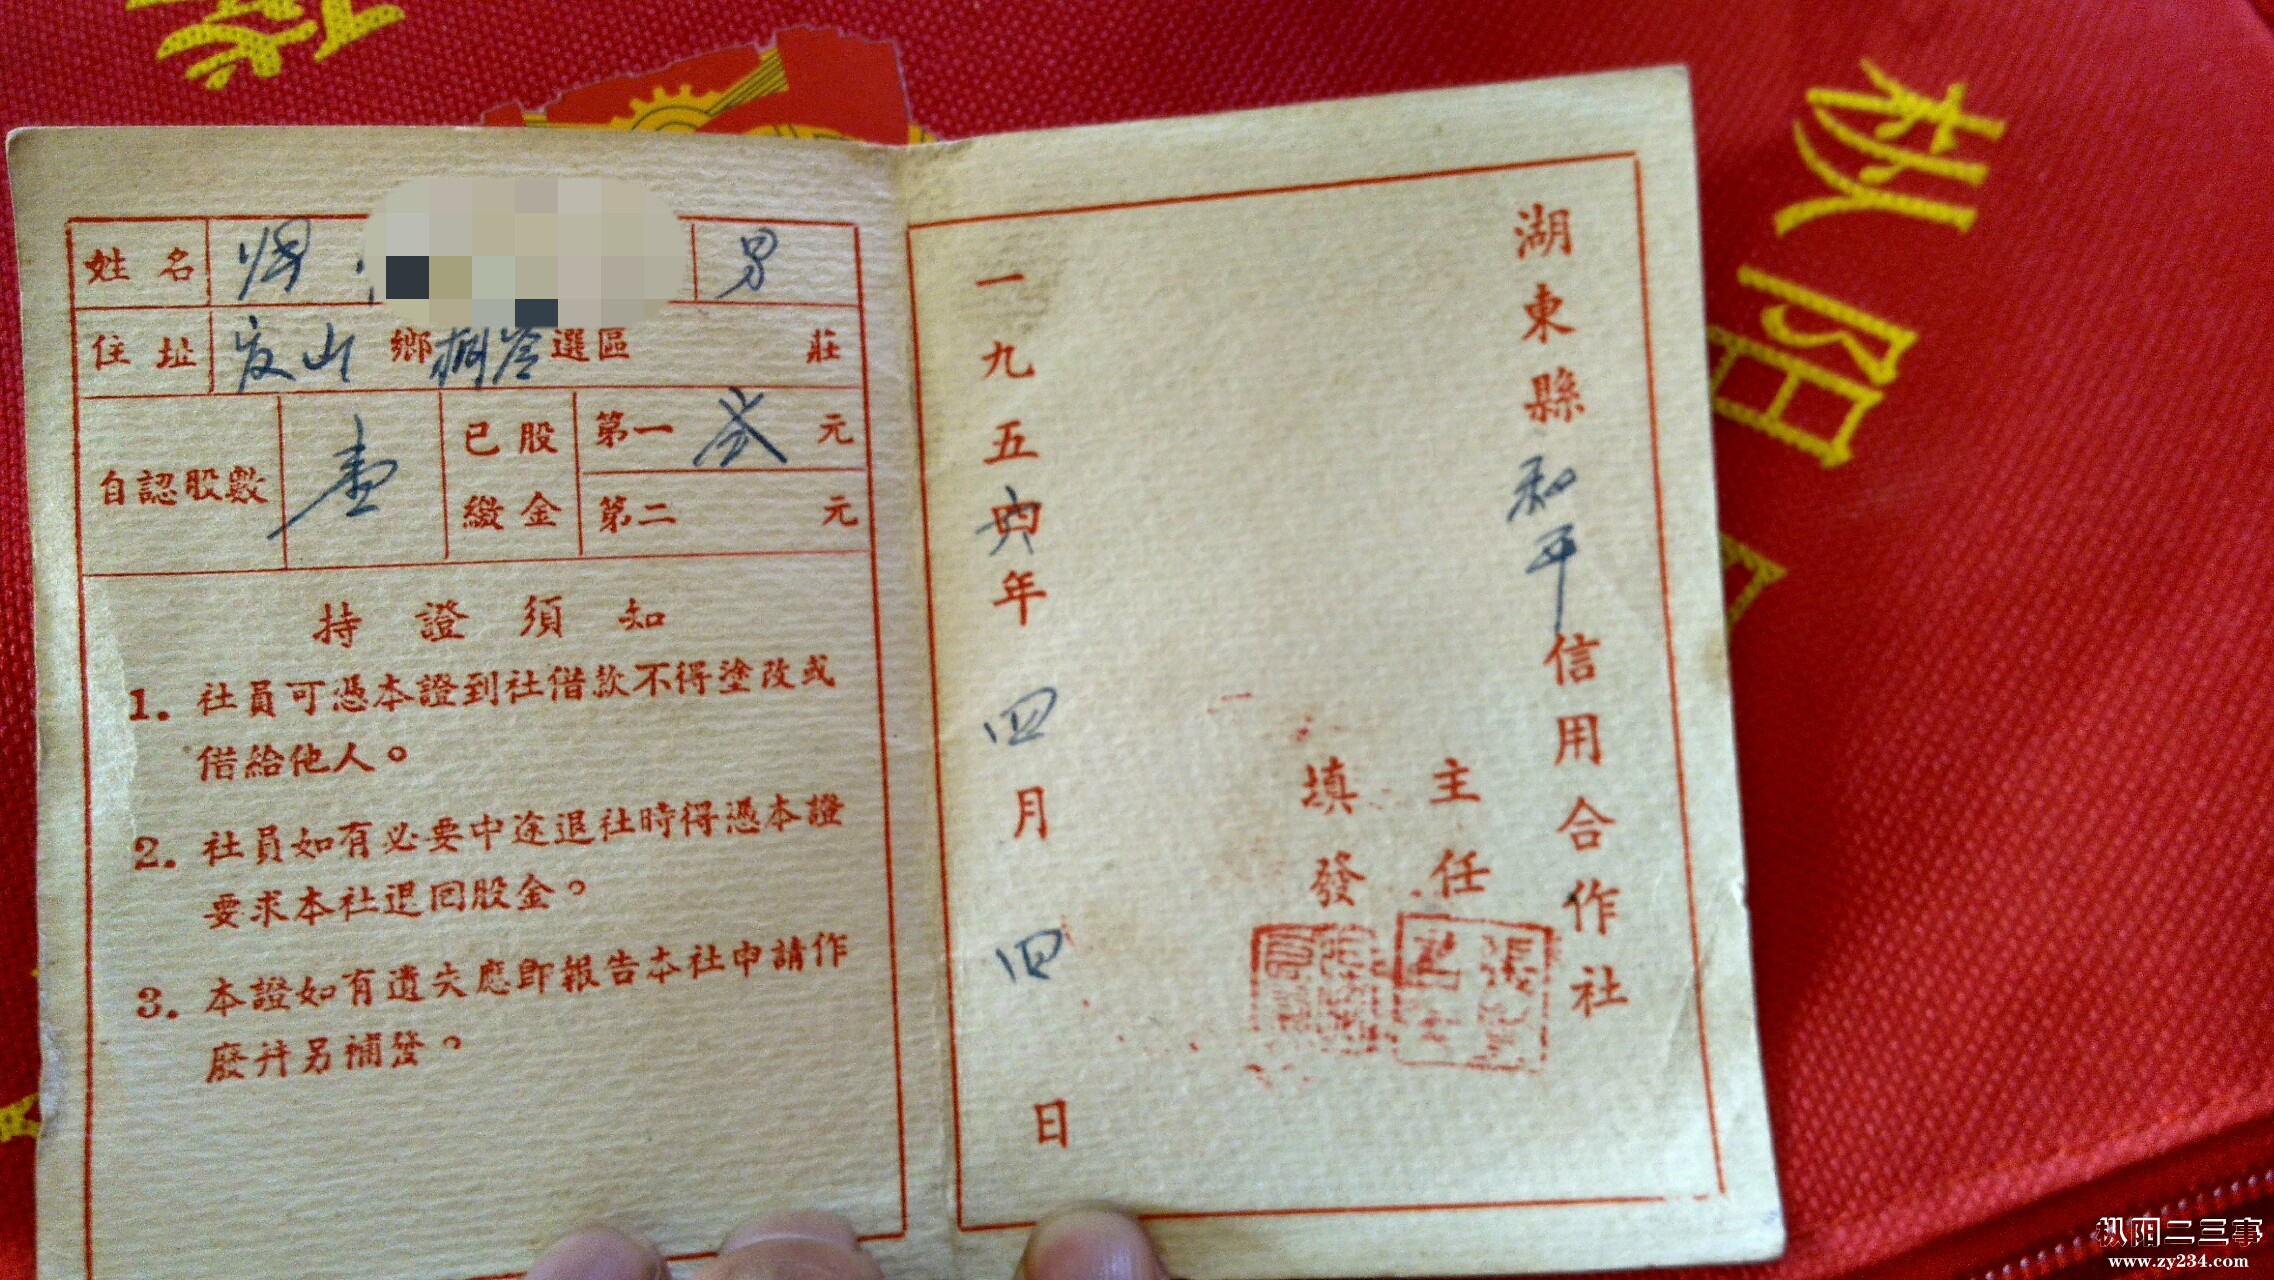 姓名 男
住址 山鄉 選區 莊
自認股數 壹
已繳股金 第一 弍 元
第二 元
持證須知
1. 社員可憑本證到社借款不得塗改或
借給他人。
2. 社員如有必要中途退社時得憑本證
要求本社退回股金。
3. 本證如有遺失應即報告本社申請作
廢并另補發。
湖東縣和平信用合作社
主任
填發
一九五六年四月四日
枞阳
枞阳二三事
www.zy234.com